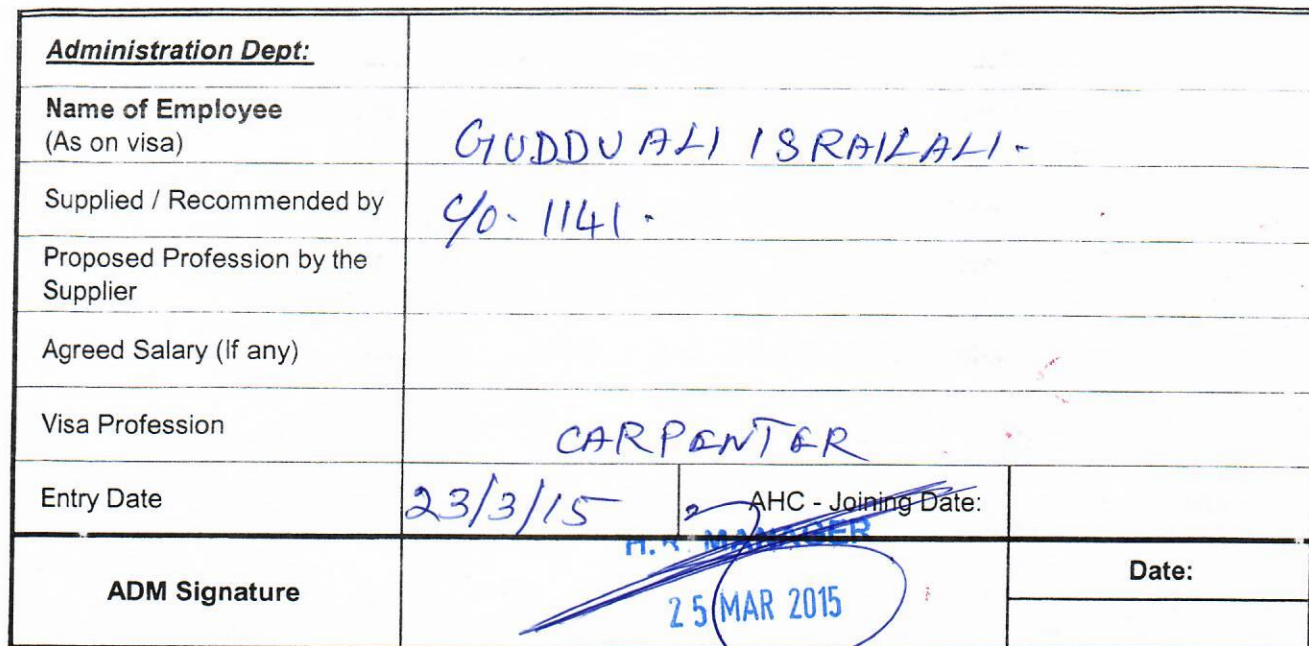 Administration Dept:
Name of Employee
(As on visa)
GUDDU ALI ISRAILALI.
Supplied / Recommended by
c/o. 1141.
Proposed Profession by the
Supplier
Agreed Salary (If any)
Visa Profession
CARPENTER
Entry Date
23/3/15
AHC - Joining Date:
ADM Signature
H.R. MANAGER
25 MAR 2015
Date: